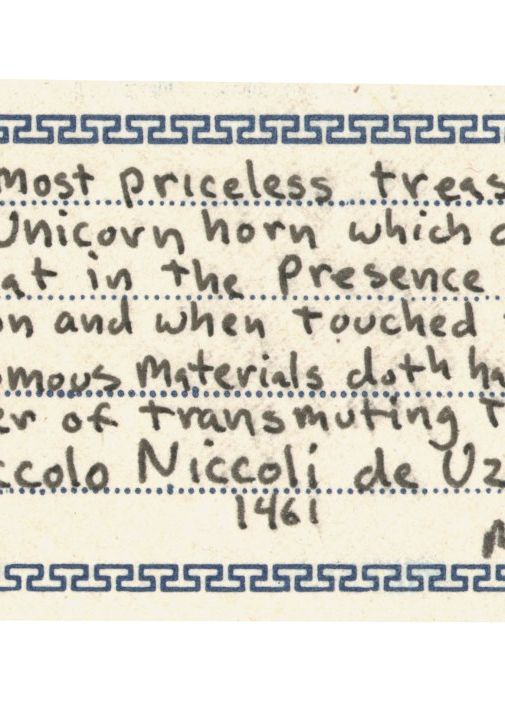 most priceless treas
Unicorn horn which d
at in the Presence
on and when touched t
omous Materials doth ha
er of transmuting t
ccolo Niccoli de Uz
1461